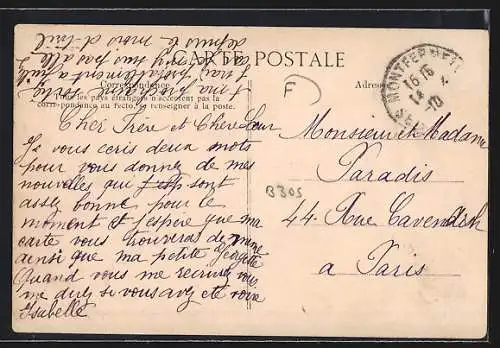 CARTE POSTALE
Correspondance
Tous les pays étrangers n'acceptent pas la
correspondance au recto, se renseigner à la poste.
Adres
F
B305
MONTFERMEIL
16 15
Cher Frère et Chere Sœur
Je vous ecris deux mots
pour vous donnez de mes
nouvelles qui sont
assez bonne pour le
moment et j'espère que ma
carte vous trouveras de meme
ainsi que ma petite Georgette
Quand vous me recrirez vous
me direz si vous avez ete voir
Isabelle
Monsieur et Madame
Paradis
44 Rue Cavendish
a Paris
depuis le mois d'